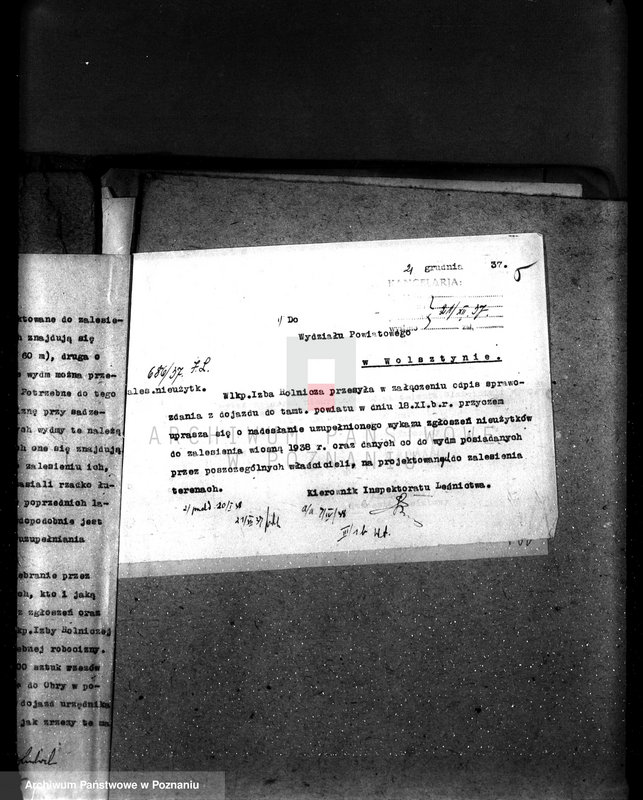 ktowane do zalesie-
znajdują się
60 m), druga o
wydm można prze-
Potrzebne do tego
przy sadze-
ych wydmy te należą
one się znajdują
zalesieniu ich,
rzadko łu-
poprzednich la-
dopodobnie jest
uzupełniania
ebranie przez
ch, kto i jaką
z zgłoszeń oraz
kp.Izby Rolniczej
ebnej robocizny.
00 sztuk wrzosów
do Obry w po-
dojazd urzędnika
jak zrzezy te ma
21 grudnia 37.
5
KANCELARIA:
21/XII.37.
1/ Do
Wydziału Powiatowego
w Wolsztynie.
686/37 FL.
ales.nieużytk.
Wlkp.Izba Rolnicza przesyła w załączeniu odpis sprawo-
zdania z dojazdu do tamt. powiatu w dniu 18.XI.b.r. przyczem
uprasza się o nadesłanie uzupełnionego wykazu zgłoszeń nieużytków
do zalesienia wiosną 1938 r. oraz danych co do wydm posiadanych
przez poszczególnych właścicieli, na projektowanej do zalesienia
terenach.
Kierownik Inspektoratu Leśnictwa.
ARCHIWUM PAŃSTWOWE
W POZNANIU
Archiwum Państwowe w Poznaniu